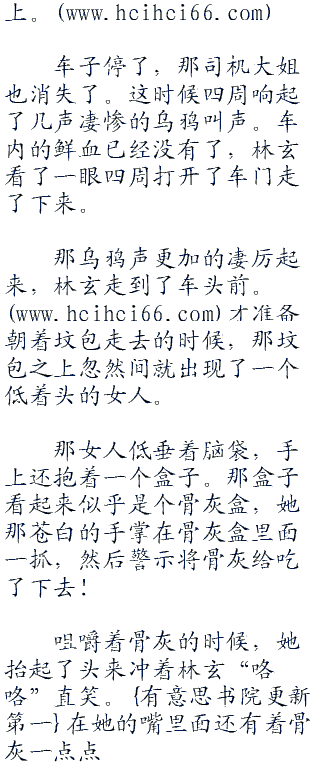 上。(www.hcihci66.com)
车子停了，那司机大姐
也消失了。这时候四周响起
了几声凄惨的乌鸦叫声。车
内的鲜血已经没有了，林玄
看了一眼四周打开了车门走
了下来。
那乌鸦声更加的凄厉起
来，林玄走到了车头前。
(www.hcihci66.com)才准备
朝着坟包走去的时候，那坟
包之上忽然间就出现了一个
低着头的女人。
那女人低垂着脑袋，手
上还抱着一个盒子。那盒子
看起来似乎是个骨灰盒，她
那苍白的手掌在骨灰盒里面
一抓，然后警示将骨灰给吃
了下去！
咀嚼着骨灰的时候，她
抬起了头来冲着林玄“咯
咯”直笑。{有意思书院更新
第一}在她的嘴里面还有着骨
灰一点点